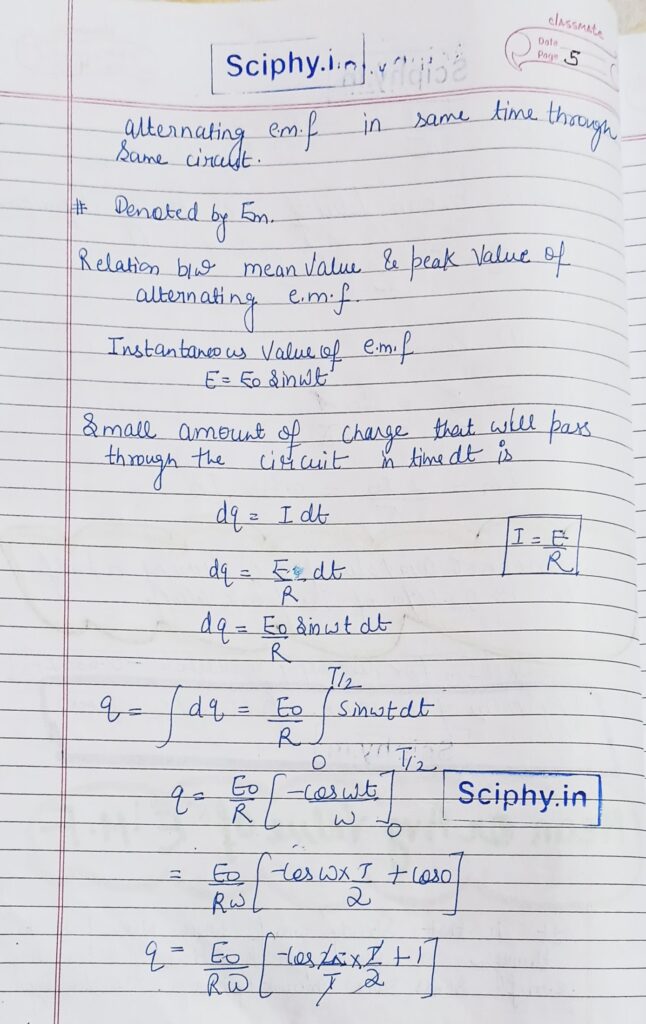 classmate
Date
Page 5
Sciphy.in
alternating e.m.f in same time through
same circuit.
# Denoted by Em.
Relation b/w mean value & peak value of
alternating e.m.f.
Instantaneous value of e.m.f
E = E0 sinωt
Small amount of charge that will pass
through the circuit in time dt is
dq = I dt
I = E/R
dq = E/R dt
dq = E0/R sinωt dt
q = ∫ dq = E0/R ∫₀^T/2 sinωt dt
q = E0/R [-cosωt/ω]₀^T/2
Sciphy.in
= E0/Rω [-cosω×T/2 + cos0]
q = E0/Rω [-cos2π/T × T/2 + 1]